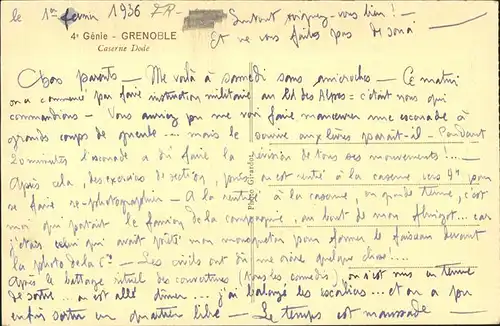 le 1er février 1936
Surtout soignez-vous bien !
Et ne vous faites pas de souci
4e Génie - GRENOBLE
Caserne Dode
Chers parents - Me voilà à samedi sans anicroches - Ce matin
on a commencé par faire instruction militaire au Bd des Alpes = c'était nous qui
commandions - Vous auriez pu me voir faire manœuvrer une escouade à
grands coups de gueule ... mais le sourire aux lèvres paraît-il - Pendant
20 minutes l'escouade a dû faire la révision de tous ses mouvements ! ...
Après cela, des exercices de section, puis on est rentré à la caserne vers 9h pour
se faire re-photographier - A la rentrée à la caserne, en grande tenue, c'est
moi qui portait le fanion de la compagnie, au bout de mon car
j'étais celui qui avait prêté mon mousqueton pour former le faisceau devant
la photo de la Cie - Les civils ont dû me croire quelque chose ! ...
Après le battage rituel des couvertures (tous les samedis), on s'est mis en tenue
de sortie .. on est allé dîner ... j'ai balayé les escaliers ... et on a pu
enfin sortir en quartier libre - Le temps est maussade
Photo Girardot